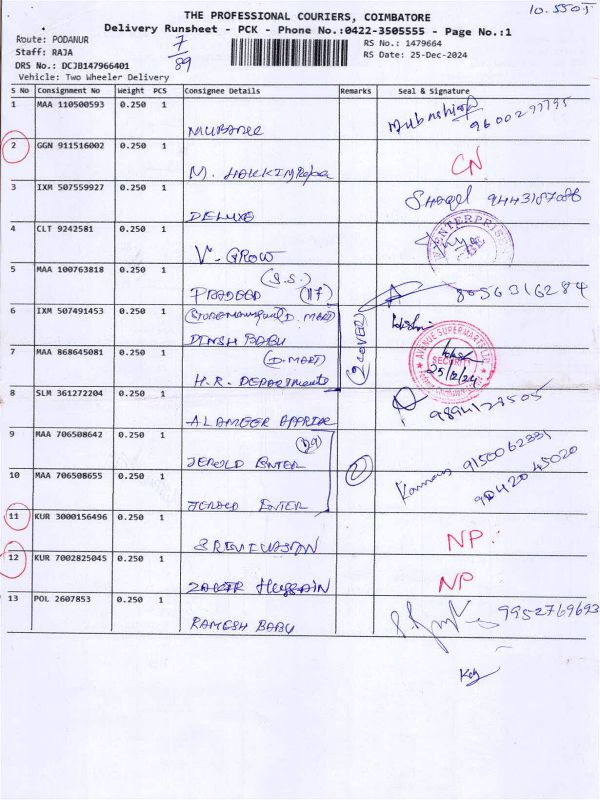 10.550
THE PROFESSIONAL COURIERS, COIMBATORE
Delivery Runsheet - PCK - Phone No.:0422-3505555 - Page No.:1
Route: PODANUR 7 RS No.: 1479664
Staff: RAJA 89 RS Date: 25-Dec-2024
DRS No.: DCJB147966401
Vehicle: Two Wheeler Delivery
S No Consignment No Weight PCS Consignee Details Remarks Seal & Signature
1 MAA 110500593 0.250 1 MUBARAK 9600297795
2 GGN 911516002 0.250 1 M. CN
3 IXM 507559927 0.250 1 DELUXE 9443187088
4 CLT 9242581 0.250 1 V-GROW ENTERPRISE
5 MAA 100763818 0.250 1 PRADEEP 8056316284
6 IXM 507491453 0.250 1 (D. MART) DINSH BABU
2 COVER
7 MAA 868645081 0.250 1 (D. MART) H.R. DEPARTMENTS
AVENUE SUPERMARTS LTD SECURITY 25/12/24
8 SLM 361272204 0.250 1 ALAMEER 9894123505
9 MAA 706508642 0.250 1 JEROLD ENTER 2 9150062331
10 MAA 706508655 0.250 JEROLD ENTER 9042045020
11 KUR 3000156496 0.250 1 SRENIVASAN NP
12 KUR 7002825045 0.250 1 ZAKIR HUSSAIN NP
13 POL 2607853 0.250 1 RAMESH BABU 9952769693